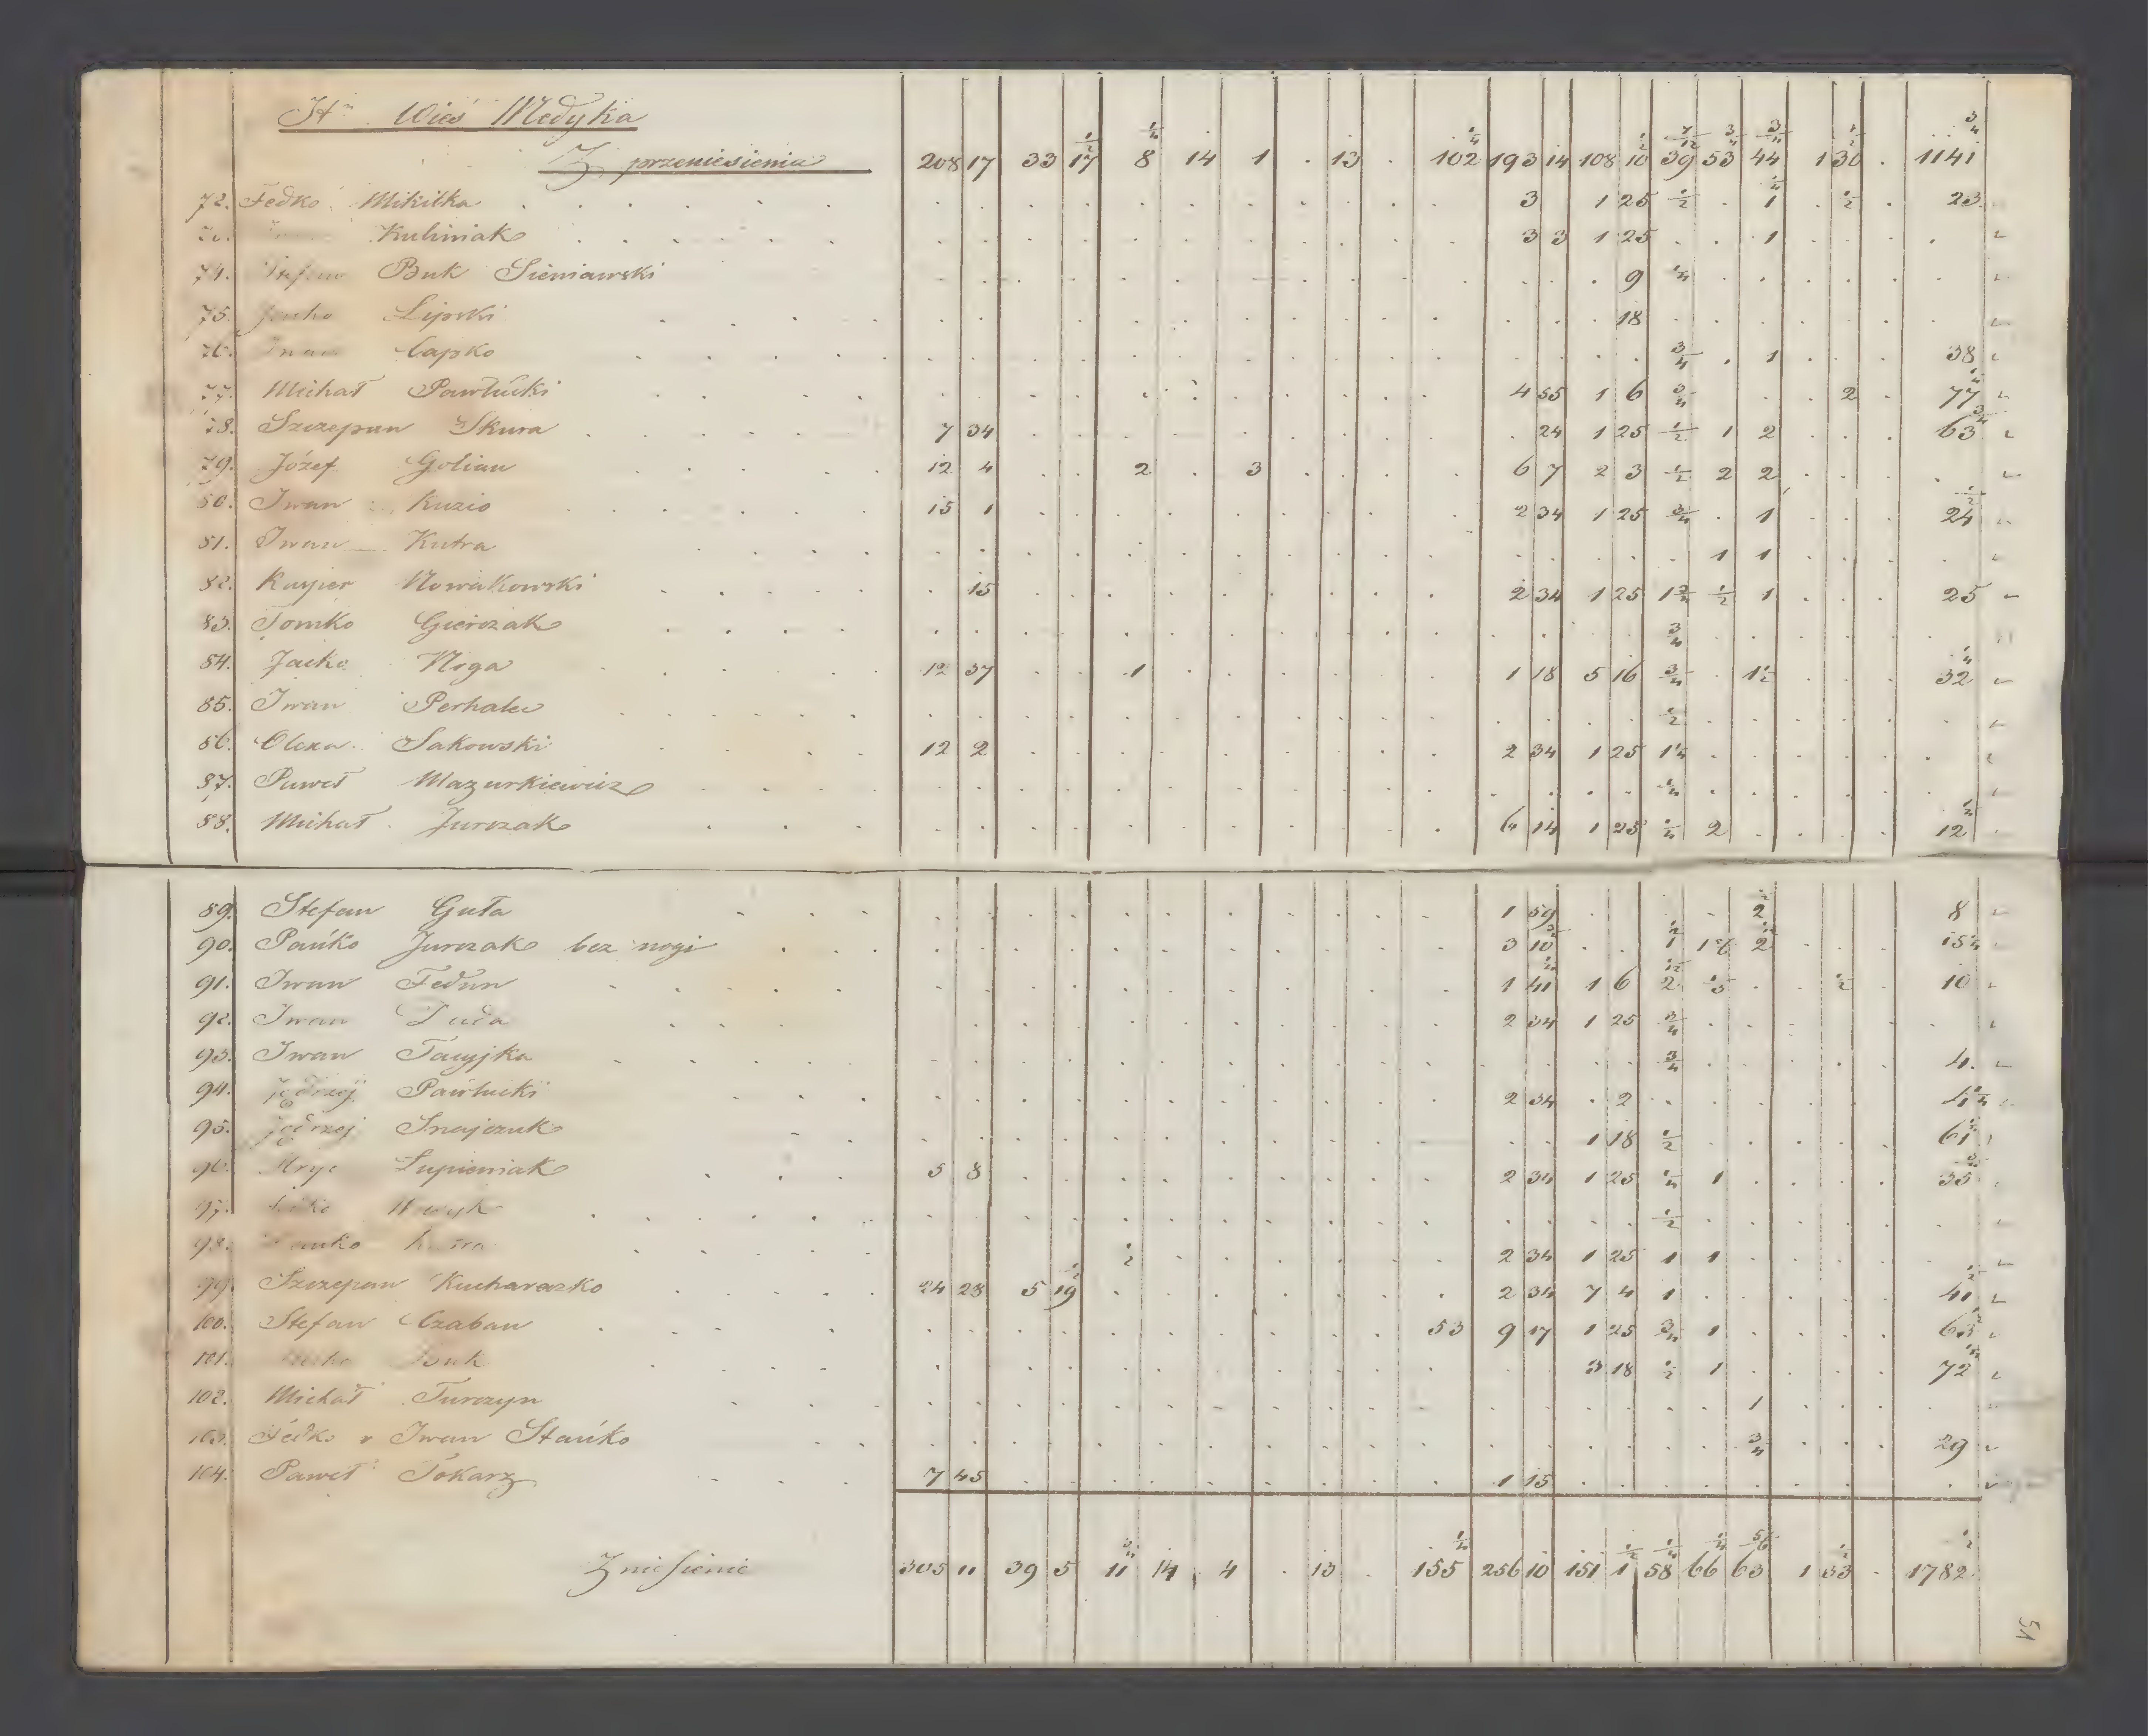 Wieś Medyka
Z przeniesienia 208 17 33 17 1/2 8 1/4 14 1 . 13 . 102 1/4 193 14 108 10 1/2 39 7/12 53 3/4 44 3/4 1 30 1/2 . 1141 3/4
72. Fedko Mikitka 3 1 25 1/2 . 1 1/4 . 1/2 . 23
Kuliniak 3 3 1 25 . . 1
74. Stefan Buk Sieniawski 9 1/4
75. Lipski 18
76. Iwan Capko 3/4 . 1 38
77. Michał Pawłucki 4 55 1 6 3/4 2 77 1/4
78. Szczepan Skura 7 34 24 1 25 1/2 1 2 63 3/4
79. Józef Golian 12 4 2 . 3 6 7 2 3 1/2 2 2
80. Iwan Kuzio 15 1 2 34 1 25 3/4 . 1 24 1/2
81. Iwan Kutra 1 1
82. Kasper Nowakowski 15 2 34 1 25 1 3/4 1/2 1 25
83. Tomko Gierczak 3/4
84. Jacko Noga 12 37 1 1 18 5 16 3/4 . 1 1/2 32 1/4
85. Iwan Perhalec 1/2
86. Olexa Sakowski 12 2 2 34 1 25 1 1/4
87. Paweł Mazurkiewicz 1/4
88. Michał Jurczak 6 14 1 25 1/4 2 12 1/2
89. Stefan Guła 1 59 2 8
90. Pańko Jurczak bez nogi 3 10 1 2
91. Iwan Fedun 1 41 1 6 2 1/2 10
92. Iwan Duda 2 34 1 25 3/4
93. Iwan 3/4 4
94. Jędrzej Pawłucki 2 34 . 2
95. Jędrzej Snajczuk 1 18 1/2 61
96. Hryc Łupieniak 5 8 2 34 1 25 1/4 1 35 3/4
97. 1/2
98. Kutra 1/2 2 34 1 25 1 1
99. Szczepan Kucharczko 24 28 5 19 1/2 2 34 7 4 1 41 1/2
100. Stefan Czaban 53 9 17 1 25 3/4 1
101. Buk 3 18 1/2 1 72
102. Michał Turczyn 1
103. Fedko i Iwan Stańko 3/4 29
104. Paweł Tokarz 7 45 1 15
Zniesienie 305 11 39 5 11 3/4 14 4 . 13 . 155 1/4 256 10 151 1 1/2 58 1/4 66 1/4 63 5/6 1 33 1/2 . 1782 1/2
51